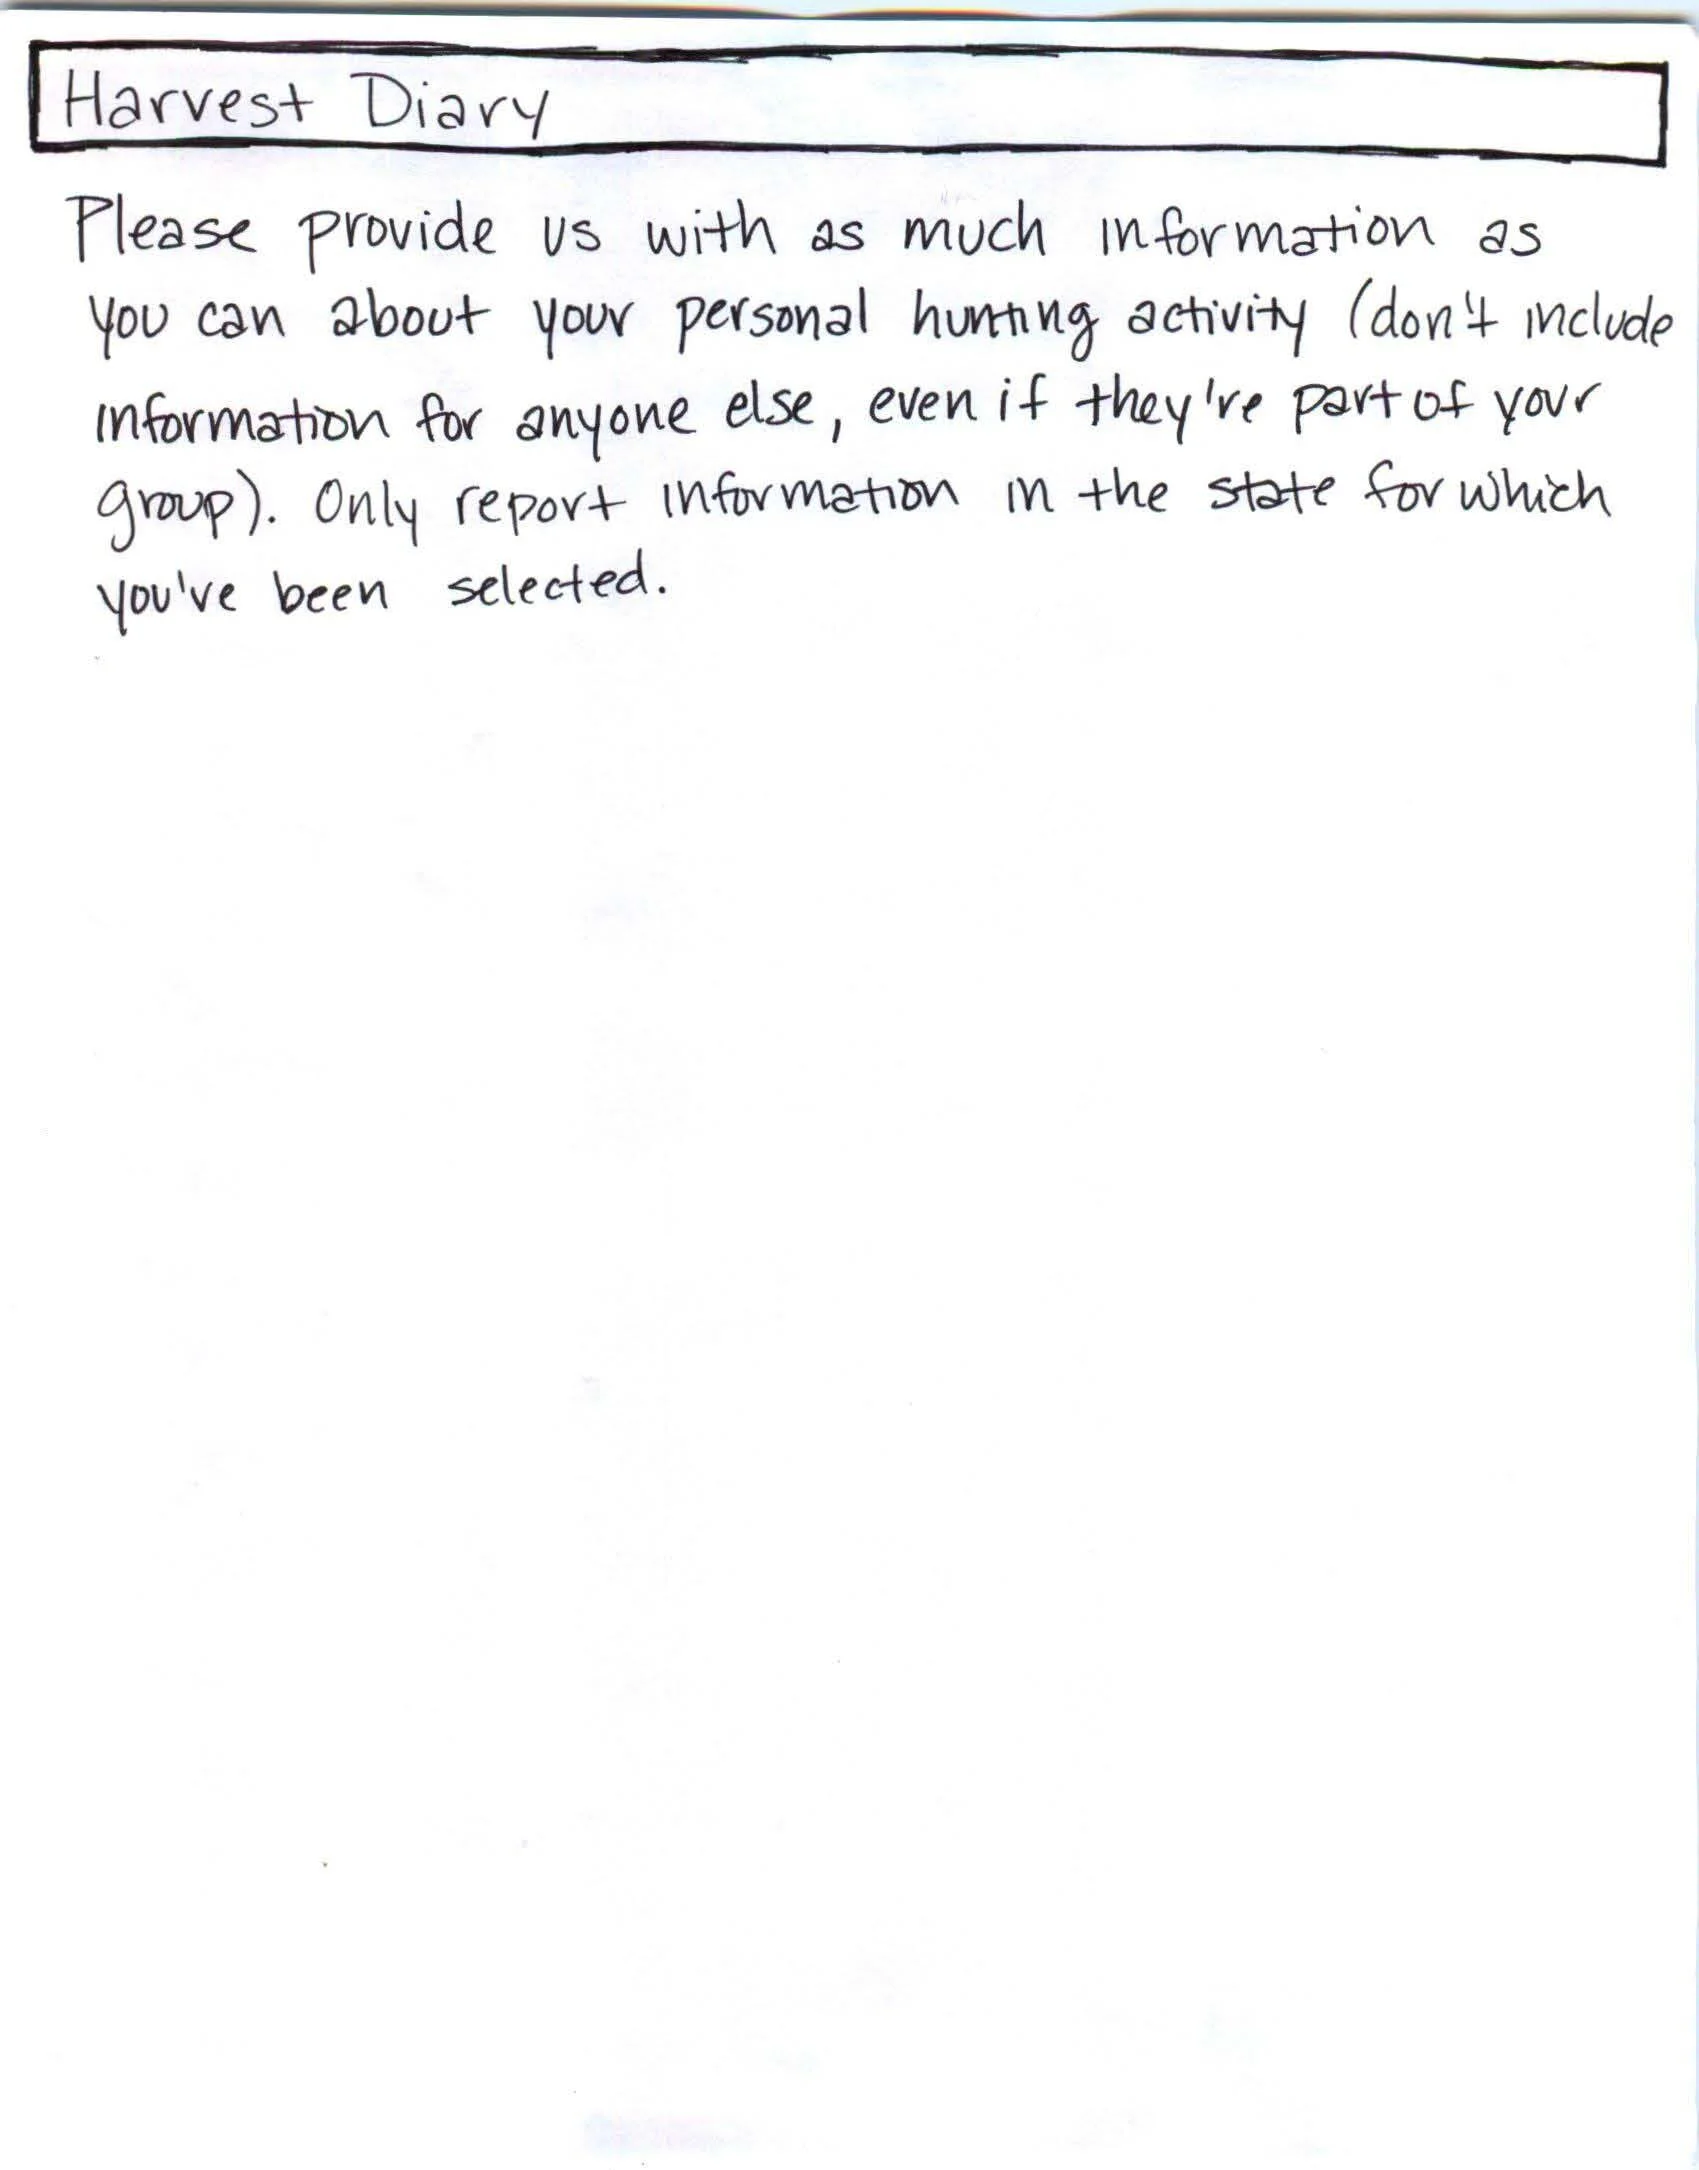 Harvest Diary
Please provide us with as much information as
you can about your personal hunting activity (don't include
information for anyone else, even if they're part of your
group). Only report information in the state for which
you've been selected.